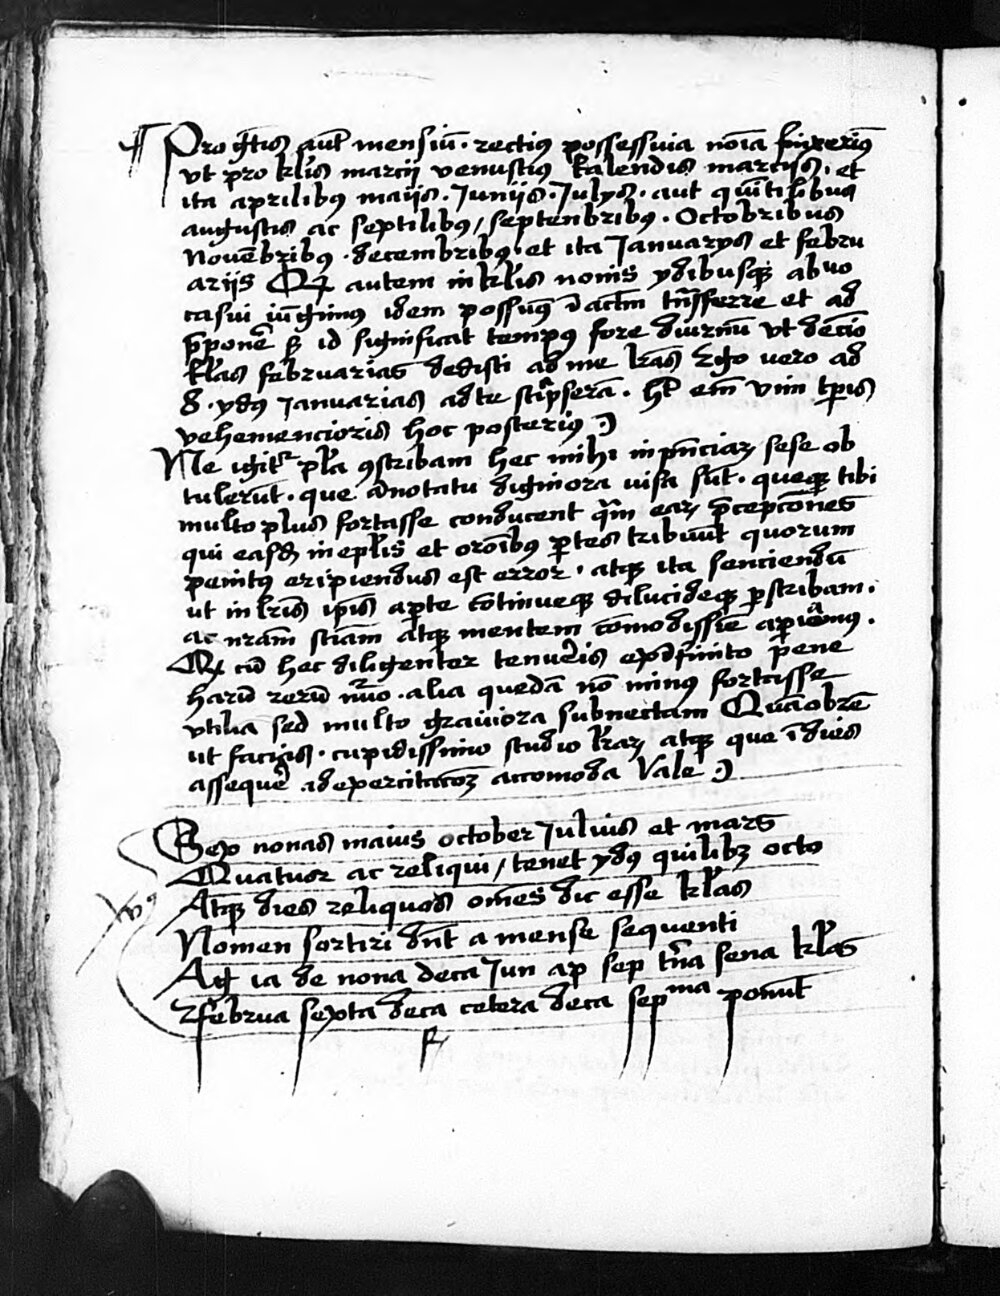 ¶ Pro gtis aut mensiū · rectius possessiuia noīa
vt pro klis marcij venustius kalendis marcijs · et
ita aprilibꝯ maijs · Junijs · Julijs · aut qūtilibus
augustis ac septilibꝯ / septenbribꝯ · Octobribus
Nouēbribꝯ · decembribꝯ · et ita Januarijs et febru
arijs Qꝛ autem in klis nonis ydibusqꝫ ab uo
casui iūgimus idem possumꝯ ī actm trāsferre et ad
p̄ponē ꝙ id significat tempꝯ fore diurnū vt decīo
klas februarias dedisti ad me lrās Ego vero ad
8 · ydꝯ Januarias ad te scripserā · Hꝫ em̄ vim tp̄is
vehemencioris hoc posteriꝯ
Ne igitr pla ꝯscribam hec mihi in p̄nciaꝝ sese ob
tulerūt · que ānotatu digniora uisa sūt · queqꝫ tibi
multo plus fortasse conducent qm̄ eaꝝ p̄cepcōnes
qui easdē in eplis et orōibꝯ ꝑtes tribuūt quorum
penitꝯ eripiendus est error · atqꝫ ita senciendū
ut in lris ip̄is aꝑte cōtinueqꝫ dilucideqꝫ ꝑscribam ·
ac nrām sniam atqꝫ mentem cōmodissīe
Qꝛ cū hec diligenter tenueris ex īfinito pene
harū rerū nūo · alia quedā nō minꝯ fortasse
vtilia sed multo grauiora subnectam Quāobrē
ut facis · cupidissimo studio lraꝝ atqꝫ que ī dies
assequeris ad exercitacōꝫ accomoda Vale
Sex nonas maius october Julius et mars
Quatuor ac reliqui / tenet ydꝯ quilibꝫ octo
Atqꝫ dies reliquos om̄es dic esse klas
Nomen sortiri dn̄t a mense sequenti
Ag ia de nona deca Jun ap sep trna sena klas
februa sexta deca cetera deca sepma ponūt